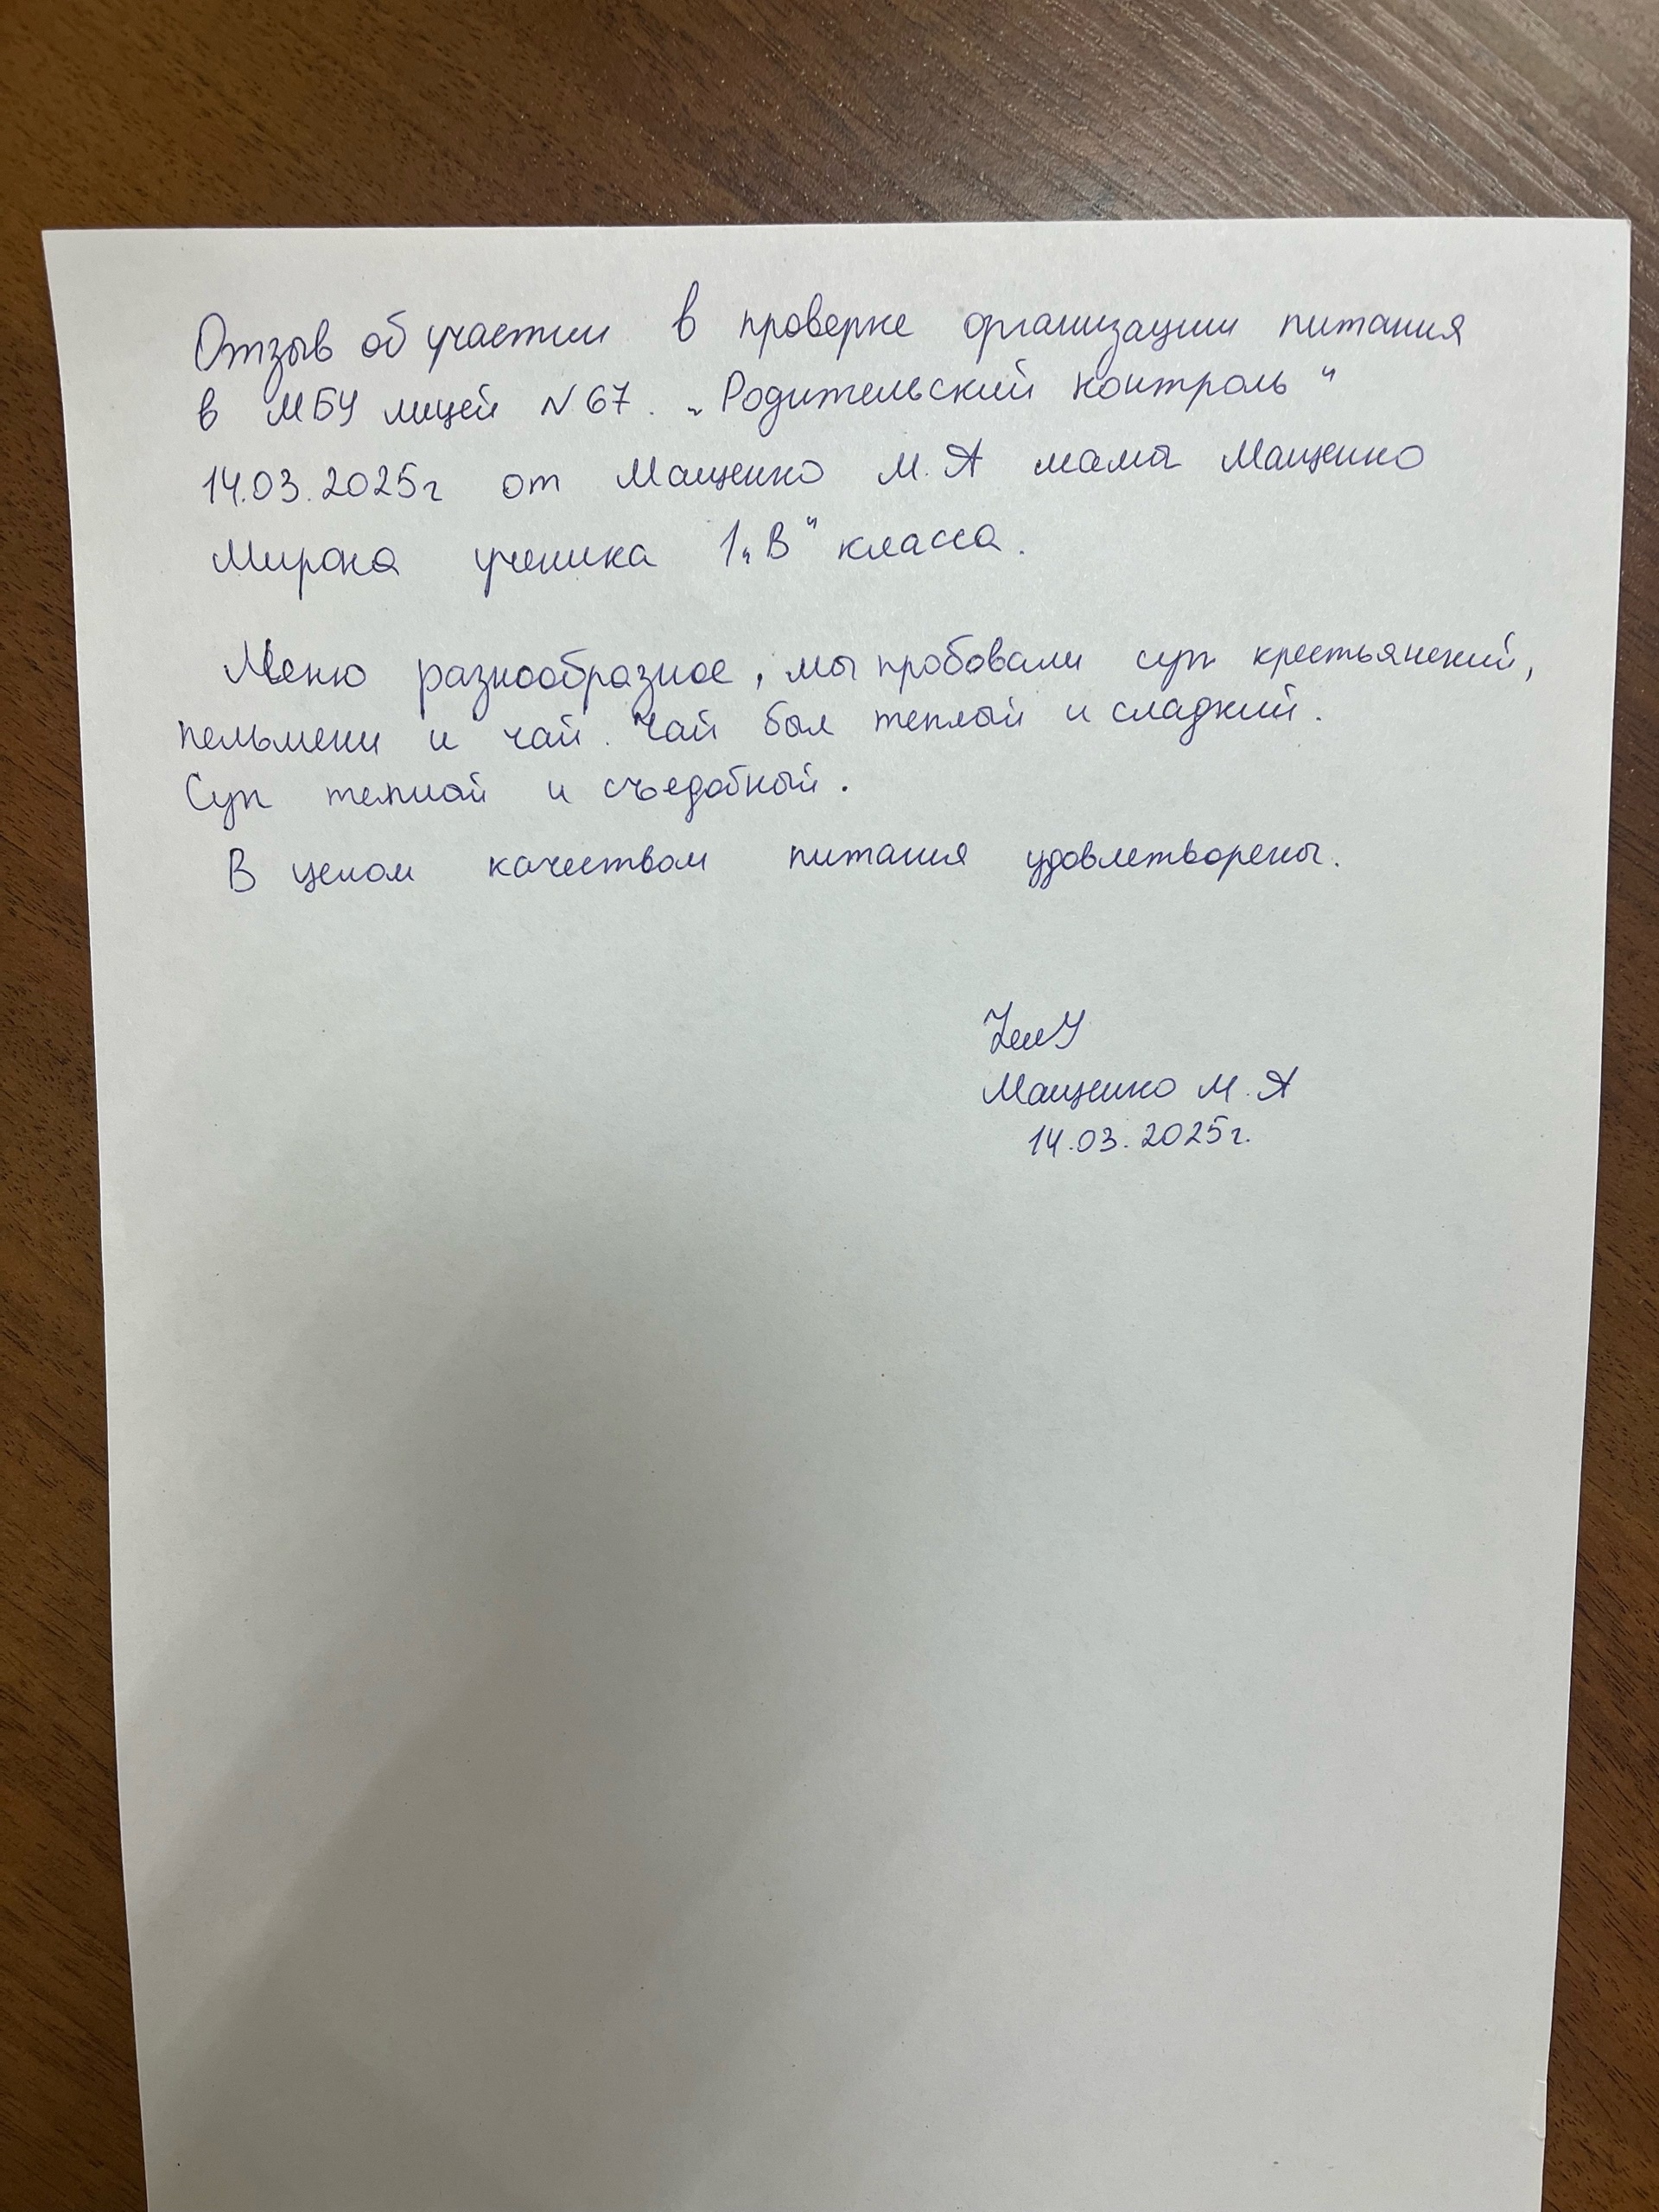 Отзыв об участии в проверке организации питания
в МБУ лицей N67. „Родительский контроль“
14.03.2025г от Мащенко М.А мама Мащенко
Мирона ученика 1„В“ класса.
Меню разнообразное, мы пробовали суп крестьянский,
пельмени и чай. Чай был теплый и сладкий.
Суп теплый и съедобный.
В целом качеством питания удовлетворены.
Мащенко М.А
14.03.2025г.